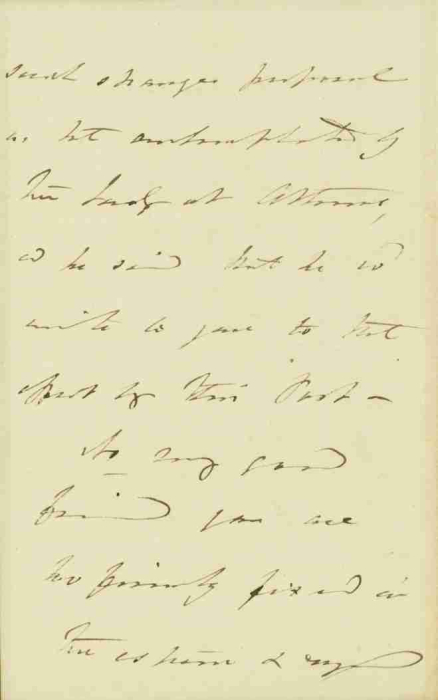 such changes proposed
as that contemplated by
the Lady at Athens,
& he said that he wd
write to you to that
effect by this Post —
No my good
friend you are
too firmly fixed in
the esteem &